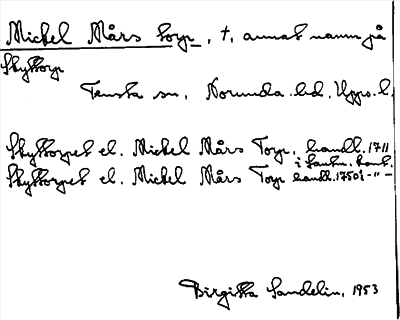 Mickel Mårs torp, †, annat namn på
Skyttorp
Tensta sn, Norunda hd. Upps. l.
Skyttorpet el. Mickel Mårs Torp. handl. 1711
i Lantm. kont.
Skyttorpet el. Mickel Mårs Torp handl. 1750 i -"-
Birgitta Sandelin, 1953